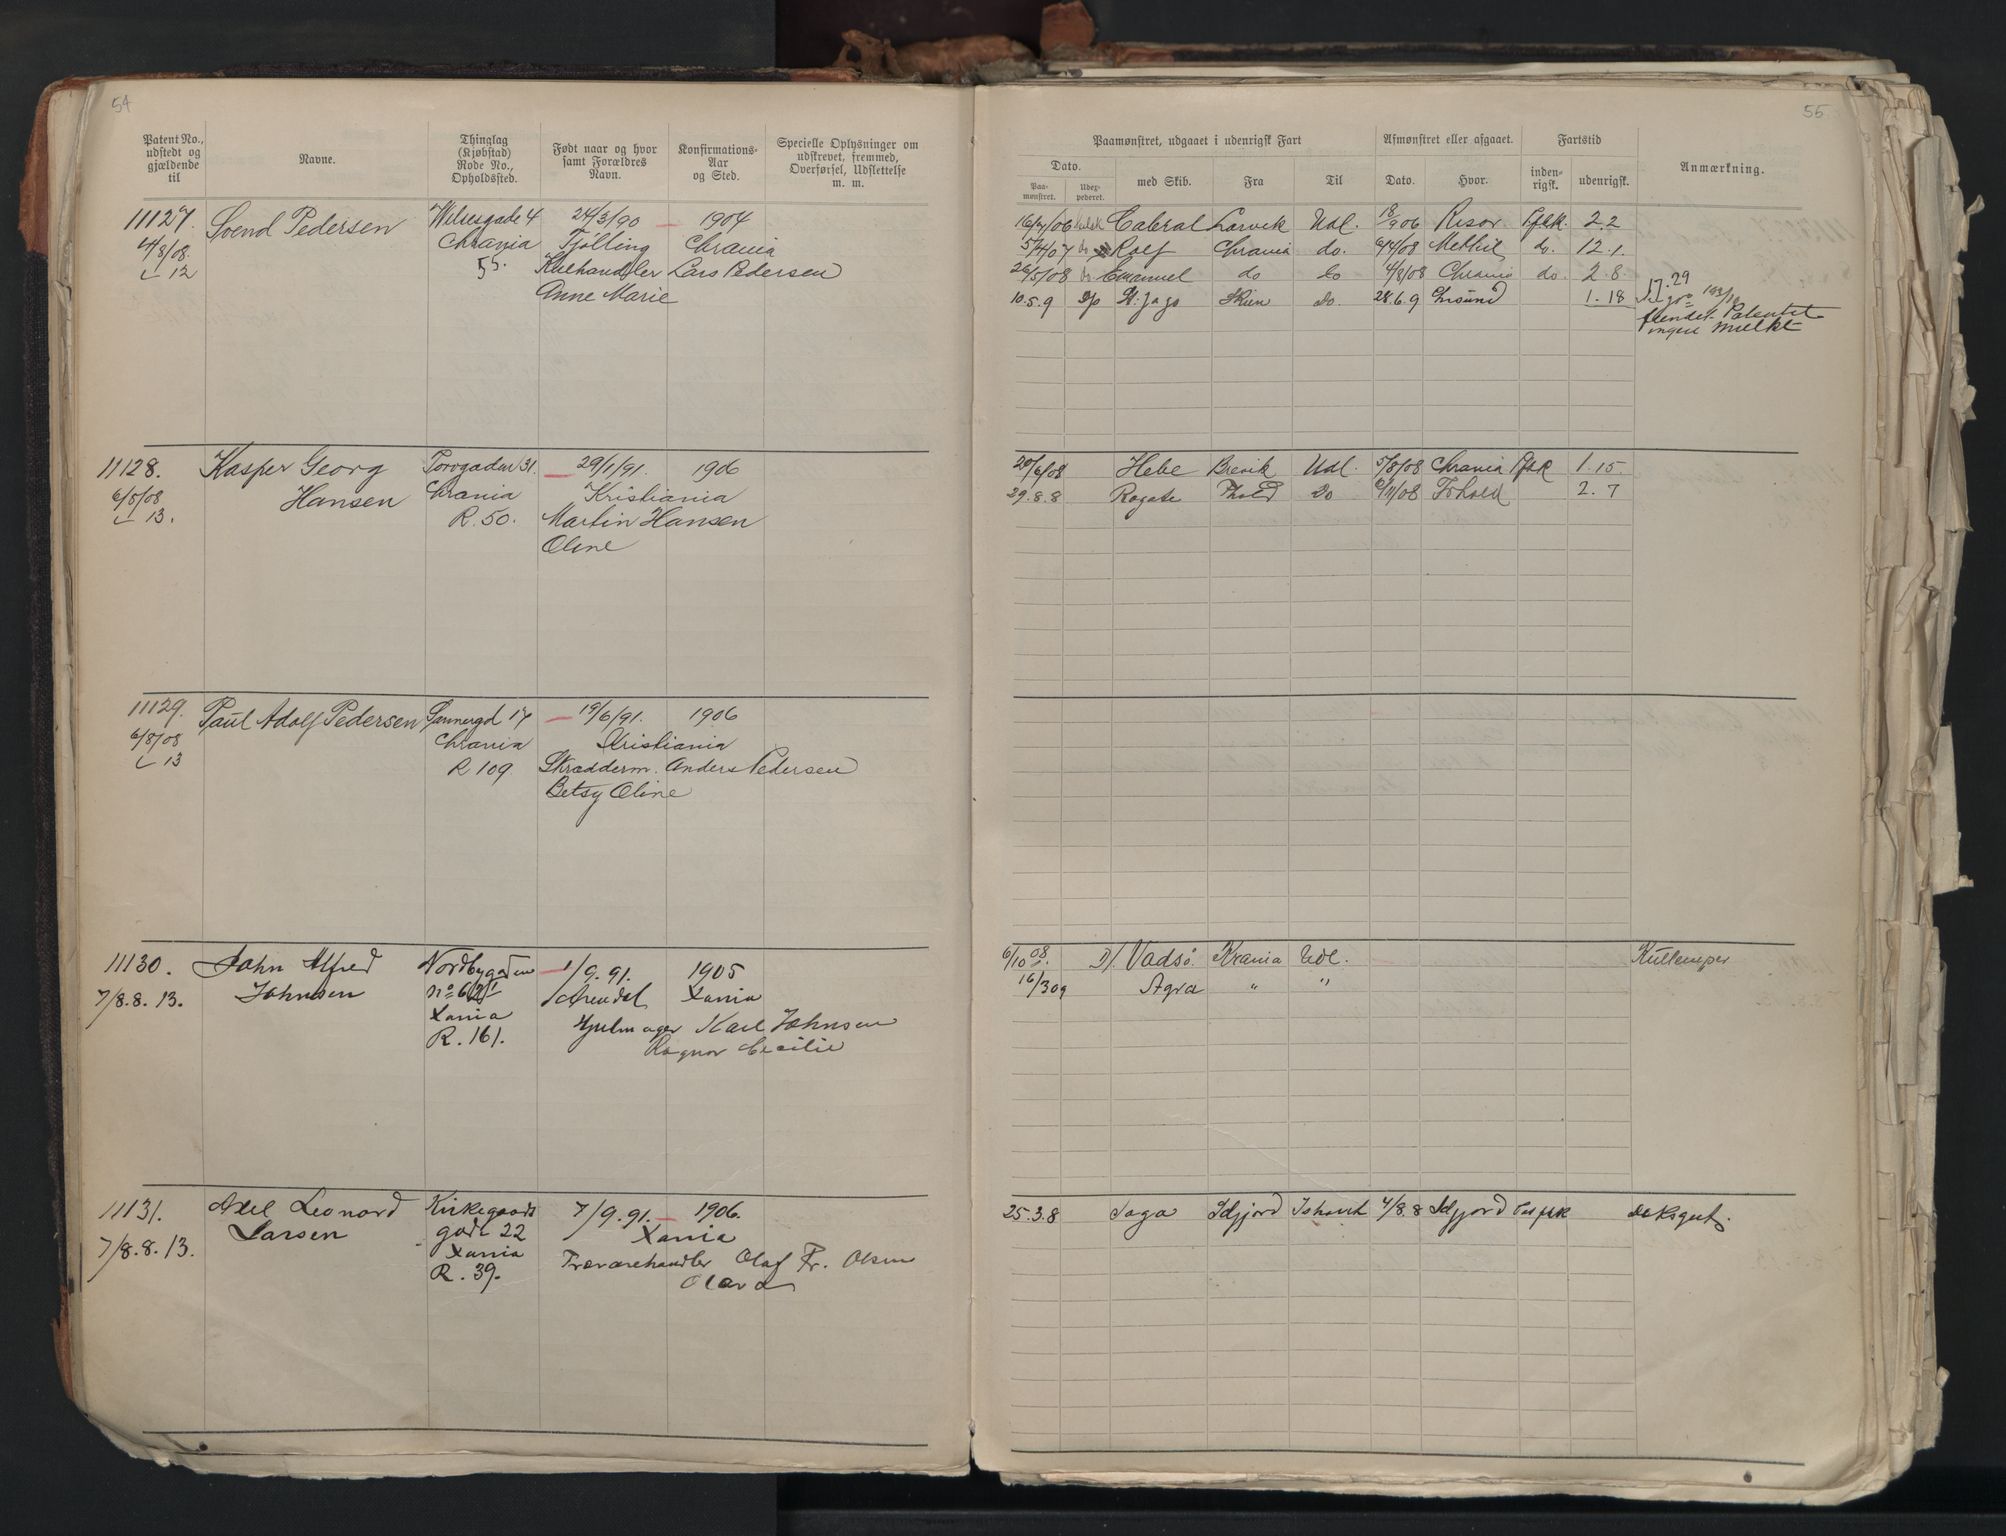 54
Patent No., udstedt og gjældende til
Navne.
Thinglag (Kjøbstad) Rode No., Opholdssted.
Født naar og hvor samt Forældres Navn.
Konfirmations-Aar og Sted.
Specielle Oplysninger om udskrevet, fremmed, Overførsel, Udslettelse m. m.
11127. Svend Pedersen 24/3/90 1904
4/8/08. Chrania Tjølling Chrania
12 55. Kulhandler Lars Pedersen
Anne Marie
11128. Kasper Georg Torvgaden 31. 29/1/91. 1906
6/8/08 Hansen Chrania Kristiania
13. R. 50. Martin Hansen
Oline
11129. Paul Adolf Pedersen 17 19/6/91. 1906
6/8/08 Chrania Kristiania
13 R 109 Skrædderm. Anders Pedersen
Betsy Oline
11130. John Alfred Nordbygaden 1/9.91. 1905
7/8.8.13. Johnsen Arendal Xania
Xania Karl Johnsen
R. 161. Cecilie
11131. Axel Leonard Kirkegaards 7/9.91. 1906.
7/8.8.13. Larsen gade 22 Xania
Xania Trævarehandler Olaf Fr. Olsen
R. 39. Olava
55
Paamønstret, udgaaet i udenrigsk Fart
Afmønstret eller afgaaet.
Fartstid
Anmærkning.
Dato.
Paamønstret.
Udexpederet.
med Skib.
Fra
Til
Dato.
Hvor.
indenrigsk.
udenrigsk.
16/7/06 Cabral Larvik Udl. 18/9 06 Risør 2.2
5/4/07 do Rolf Chrania do. 6/4/08 Methil do. 12.1.
26/5/08 do. Emanuel do do 4/8/08 Chrania do. 2.8.
10.5.9 St. Jago Skien do. 28.6.9 1.18
17.29
20/6/08 Hebe Brevik Udl. 5/8/08 Chrania 1.15.
29.8.8 Rogate Do 6/11/08 2.7
6/10 08. D/. Vadsø Krania Udl. Kullemper
16/3 09 Agra " "
25.3.8 Saga Idfjord 4/8.8 Idfjord Dæksgut.